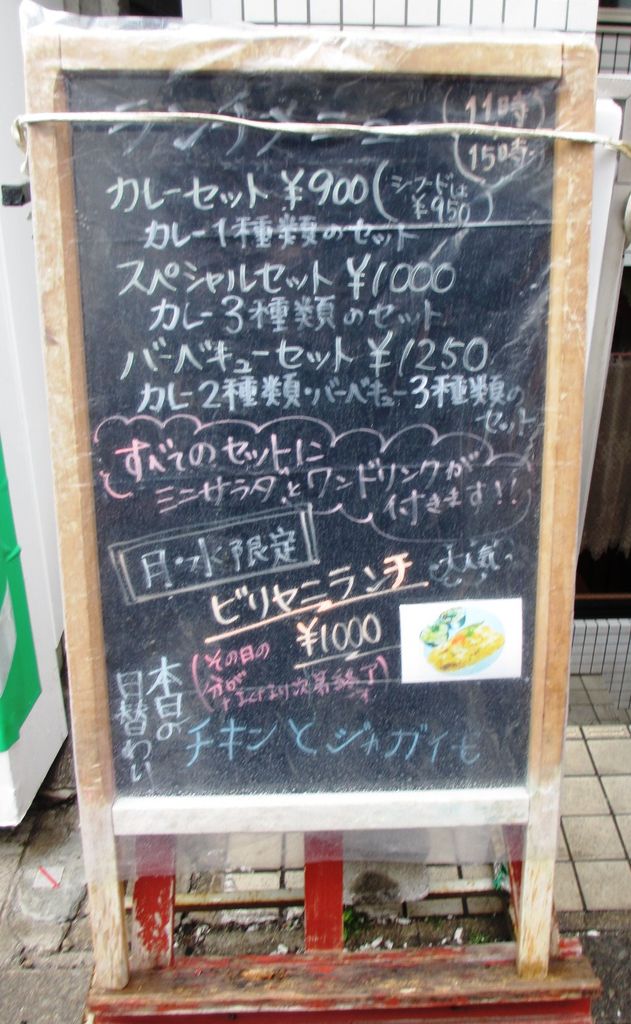 ランチメニュー
11時
15時
カレーセット ¥900(シーフードは ¥950)
カレー1種類のセット
スペシャルセット ¥1000
カレー3種類のセット
バーベキューセット ¥1250
カレー2種類・バーベキュー3種類の
セット
すべてのセットに
ミニサラダとワンドリンクが
付きます!!
月・水限定
大人気
ビリヤニランチ
¥1000
(その日の
分が
なくなり次第終了)
本日の
日替わり
チキンとジャガイモ